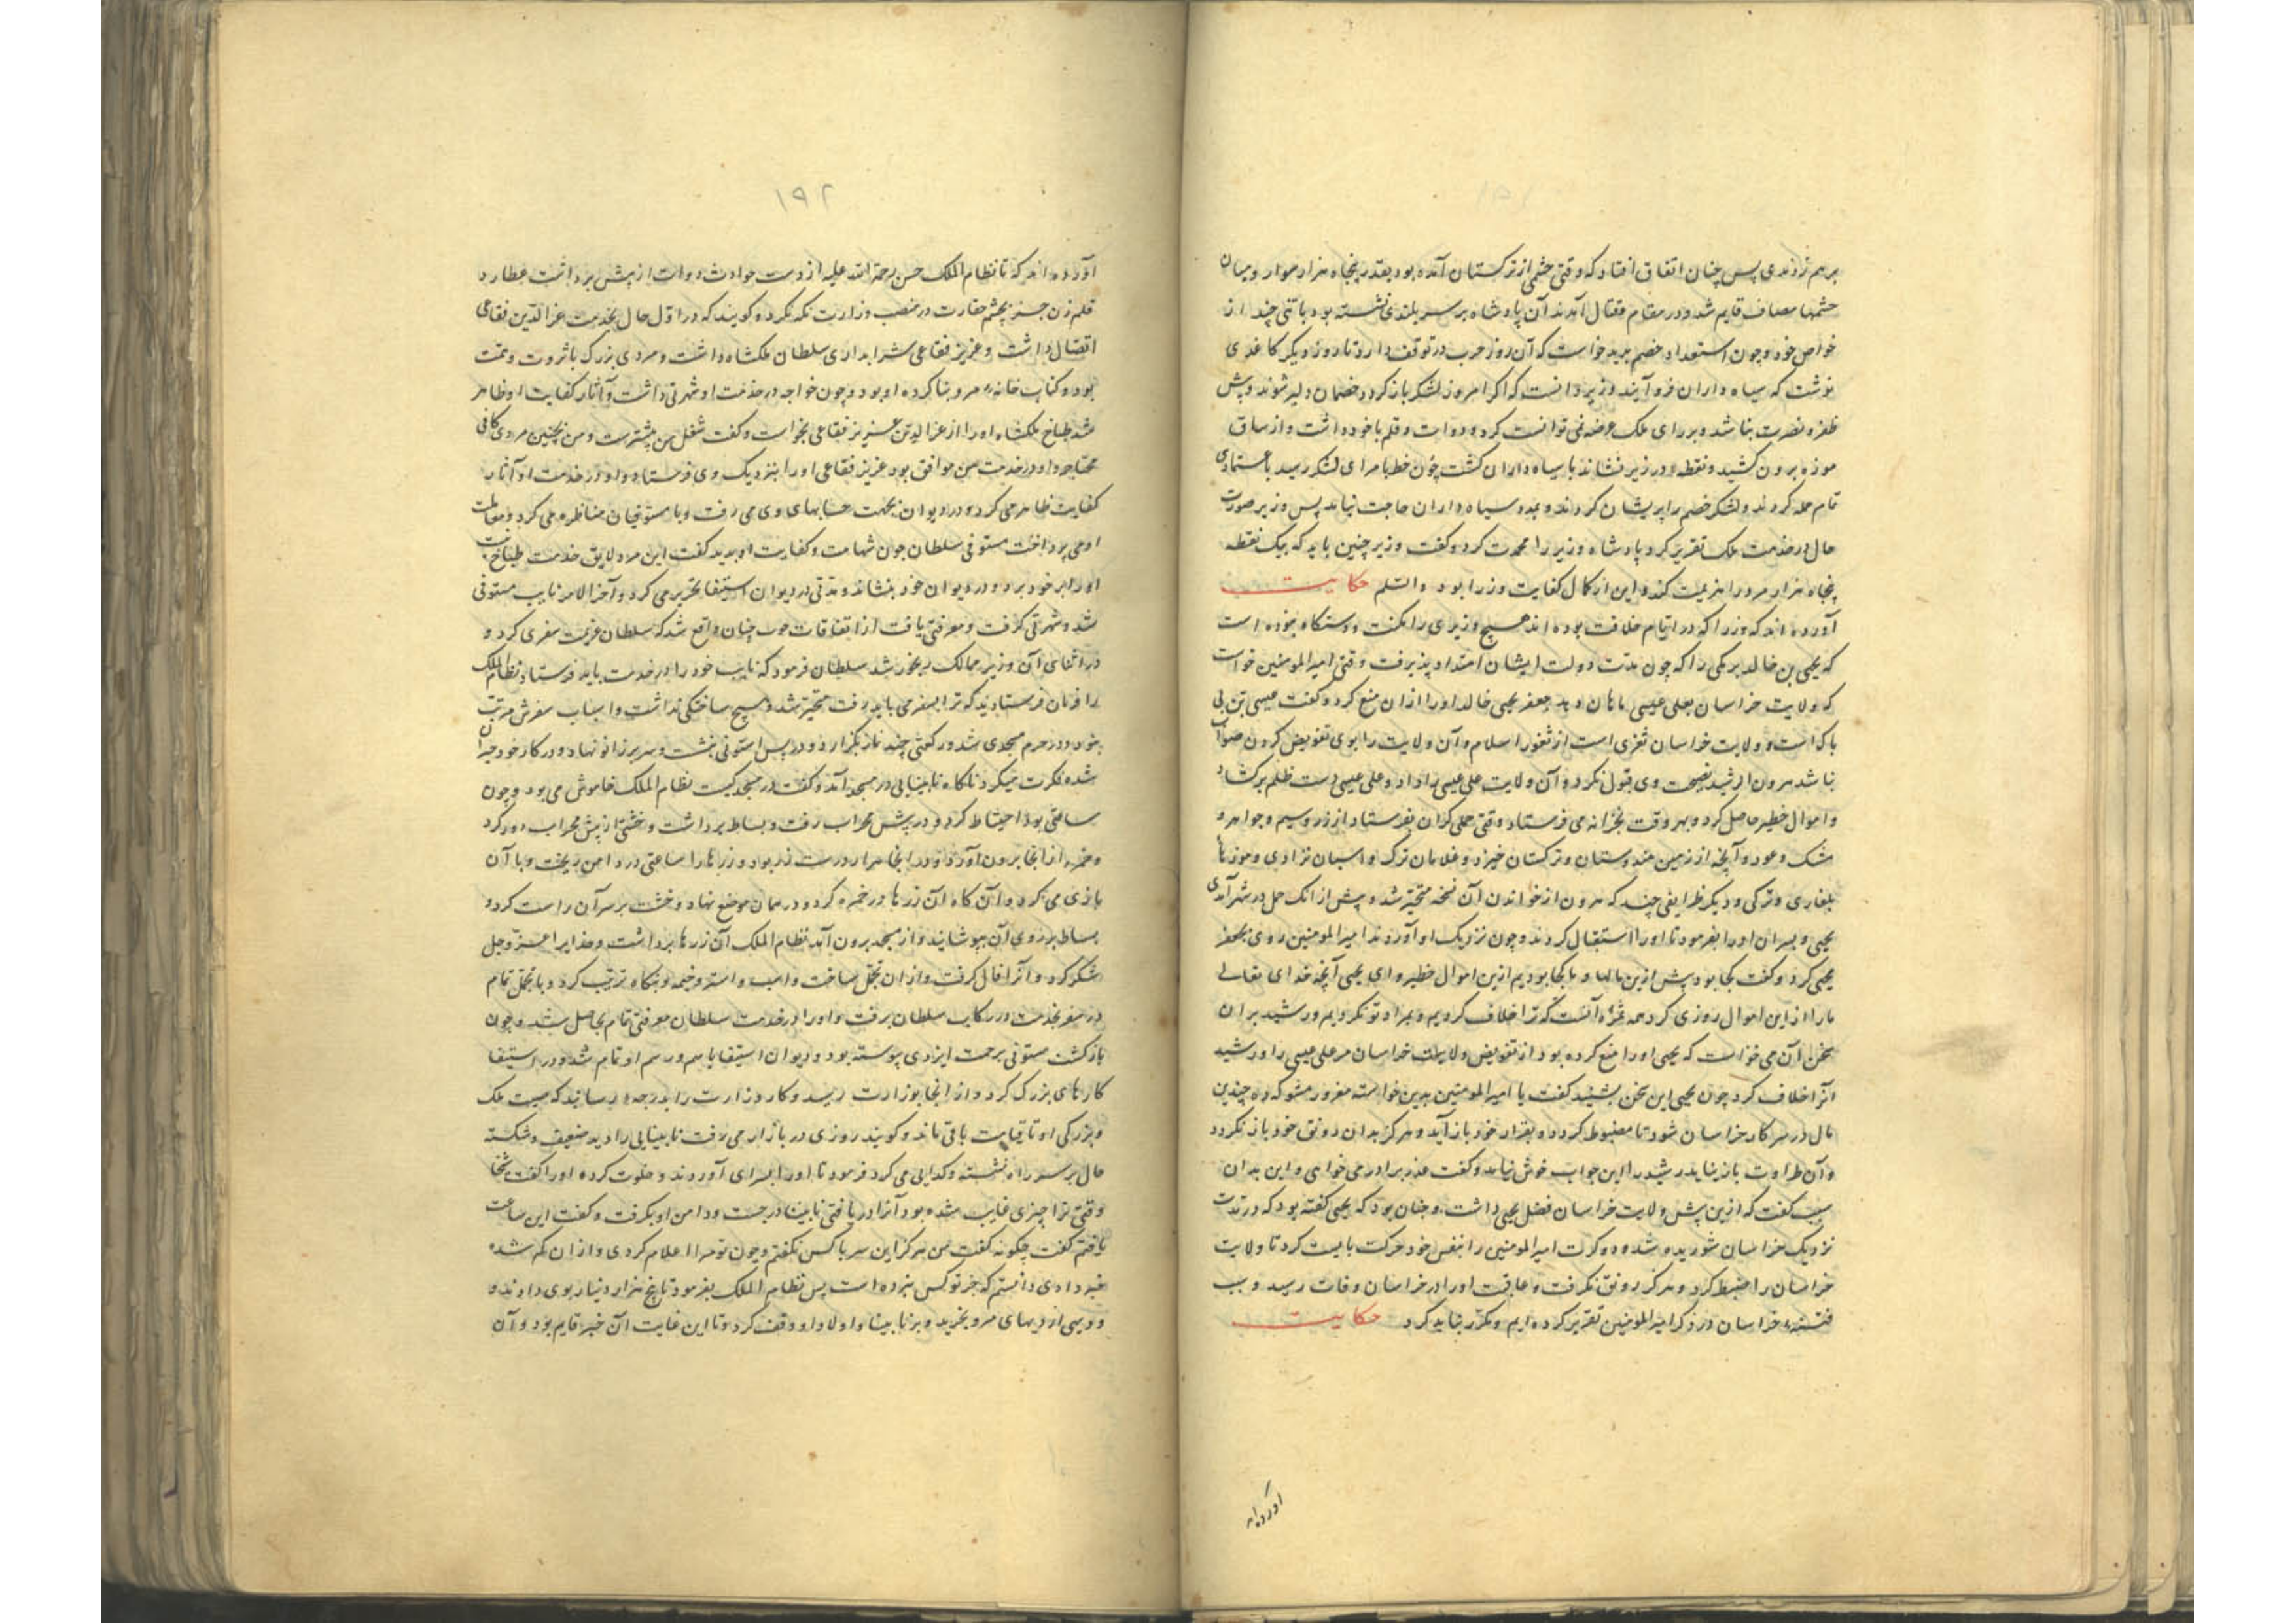 برهم زدندی پس چنان اتفاق افتاد که وقتی حشمی از ترکستان آمده بود بقدر پنجاه هزار سوار و میان
حشمها مصاف قایم شد و در مقام قتال آمدند آن پادشاه بر سر بلندی نشسته بود با تنی چند از
خواص خود و چون استعداد خصم بدید خواست که آن روز حرب در توقف دارد تا روز دیگر کاغذی
نوشت که سیاه داران فرو آیند وزیر دانست که اگر امروز لشکر باز گردد خصمان دلیر شوند و پیش
ظفر و نصرت نباشد و بر رای ملک عرضه نمی توانست کرد و دوات و قلم با خود داشت و از ساق
موزه برون کشید و نقطه در زیر نشاند با سیاه داران گشت چون خط بامرای لشکر رسید باعتمادی
تمام حمله کردند و لشکر خصم را پریشان کردند و بمدد سیاه داران حاجت نیامد پس وزیر صورت
حال در خدمت ملک تقریر کرد پادشاه وزیر را محمدت کرد و گفت وزیر چنین باید که بیک نقطه
پنجاه هزار مرد را هزیمت کند و این از کمال کفایت وزرا بود والسلم حکایت
آورده اند که وزرا که در ایام خلافت بوده اند هیچ وزیری را مکنت و دستگاه نبوده است
که یحیی بن خالد برمکی را که چون مدت دولت ایشان امتداد پذیرفت وقتی امیرالمومنین خواست
که ولایت خراسان بعلی عیسی ماهان دهد جعفر یحیی خالد او را از آن منع کرد و گفت عیسی تن بی
باک است و ولایت خراسان ثغری است از ثغور اسلام و آن ولایت را بوی تفویض کردن صواب
نباشد هرون الرشید نصیحت وی قبول نکرد و آن ولایت علی عیسی را داد و علی عیسی دست ظلم برگشاد
و اموال خطیر حاصل کرد و بهر وقت بخزانه می فرستاد وقتی حملی گران بفرستاد از زر و سیم و جواهر و
مشک و عود و آنچه از زمین هندوستان و ترکستان خیزد و غلامان ترک و اسبان نژادی و موزها
بلغاری و ترکی و دیگر ظرایفی چند که هرون از خواندن آن نسخه متحیر شد و پیش از آنک حمل در شهر آمدی
یحیی و پسران او را بفرمود تا او را استقبال کردند و چون نزدیک او آوردند امیرالمومنین روی بجعفر
یحیی کرد و گفت کجا بود پیش ازین مالها و ما کجا بودیم ازین اموال خطیر و ای یحیی آنچه خدای تعالی
ما را ازین اموال روزی کرد همه ثمره آنست که ترا خلاف کردیم و بمراد تو نکردیم و رشید بر آن
سخن آن می خواست که یحیی او را منع کرده بود از تفویض ولایت خراسان مر علی عیسی را و رشید
آنرا خلاف کرد چون یحیی این سخن بشنید گفت یا امیرالمومنین بدین خواسته مغرور مشو که ده چندین
مال در سر کار خراسان شود تا مضبوط گردد و بقرار خود باز آید و هرگز بدان رونق خود باز نگردد
و آن طراوت باز نیاید رشید را این جواب خوش نیامد و گفت عذر برادر می خواهی و این بدان
سبب گفت که ازین پیش ولایت خراسان فضل یحیی داشت و چنان بود که یحیی گفته بود که در مدت
نزدیک خراسان شوریده شد و دو کرت امیرالمومنین را بنفس خود حرکت بایست کرد تا ولایت
خراسان را ضبط کرد و هرگز رونق نگرفت و عاقبت او را در خراسان وفات رسید و سبب
فتنه خراسان در ذکر امیرالمومنین تقریر کرده ایم و مکرر نباید کرد حکایت
آورده اند
۱۹۲
آورده اند که تا نظام الملک حسن رحمة الله علیه از دست حوادث دوات از پیش برداشت عطارد
قلم زن جز بچشم حقارت در منصب وزارت نگه نکرد گویند که در اول حال بخدمت عزالدین فقاعی
اتصال داشت و عزیز فقاعی شرابداری سلطان ملکشاه داشت و مردی بزرگ با ثروت و نعمت
بود و کتاب خانه مرو بنا کرده او بود و چون خواجه در خدمت او شهرتی داشت و آثار کفایت او ظاهر
شد طباخ ملکشاه او را از عزالدین عزیز فقاعی بخواست و گفت شغل من بیشترست و من بچنین مردی کافی
محتاجم و او در خدمت من موافق بود عزیز فقاعی او را بنزدیک وی فرستاد و او در خدمت او آثار
کفایت ظاهر می کرد و در دیوان بجهت حسابهای وی می رفت و با مستوفیان مناظره می کرد و معاملت
او می پرداخت مستوفی سلطان چون شهامت و کفایت او بدید گفت این مرد لایق خدمت طباخ نیست
او را بر خود برد و در دیوان خود بنشاند و مدتی در دیوان استیفا تحریر می کرد و آخر الامر نایب مستوفی
شد و شهرتی گرفت و معرفتی یافت از اتفاقات خوب چنان واقع شد که سلطان عزیمت سفری کرد و
در اثنای آن وزیر ممالک رنجور شد سلطان فرمود که نایب خود را در خدمت باید فرستاد نظام الملک
را فرمان فرستادند که ترا بسفر می باید رفت متحیر شد و هیچ ساختگی نداشت و اسباب سفرش مرتب
نبود و در حرم مسجدی شد و رکعتی چند نماز بگزارد و در پس استونی بنشست و سر بر زانو نهاد و در کار خود حیران
شده فکرت میکرد ناگاه نابینایی در مسجد آمد و گفت در مسجد کیست نظام الملک خاموش می بود و چون
ساعتی بود احتیاط کرد و در پیش محراب رفت و بساط برداشت و خشتی از پیش محراب دور کرد
و خمره از آنجا برون آورد و در آنجا هزار درست زر بود و زرها را ساعتی در دامن ریخت و با آن
بازی می کرد و آن گاه آن زرها در خمره کرد و در همان موضع نهاد و خشت بر سر آن راست کرد و
بساط بر روی آن بپوشانید و از مسجد برون آمد نظام الملک آن زرها برداشت و خدایرا عز و جل
شکر کرد و آنرا فال گرفت و از آن تجمل ساخت و اسب و استر و خیمه و بنگاه ترتیب کرد و با تجمل تمام
در سفر بخدمت در رکاب سلطان برفت و او را در خدمت سلطان معرفتی تمام بحاصل شد و چون
بازگشت مستوفی برحمت ایزدی پیوسته بود و دیوان استیفا باسم و رسم او تمام شد و در استیفا
کارهای بزرگ کرد و از آنجا بوزارت رسید و کار وزارت را بدرجه رسانید که صیت ملک
و بزرگی او تا قیامت باقی ماند و گویند روزی در بازار می رفت نابینایی را دید ضعیف و شکسته
حال بر سر راه نشسته و گدایی می کرد فرمود تا او را بسرای آوردند و خلوت کرده او را گفت شخا
وقتی ترا چیزی غایب شده بود آنرا دریافتی نابینا در جست و دامن او بگرفت و گفت این ساعت
یافتم گفت چگونه گفت من هرگز این سر با کس نگفتم و چون تو مرا اعلام کردی و از آن گم شده
خبر دادی دانستم که جز تو کس نبرده است پس نظام الملک بفرمود تا پنج هزار دینار بوی دادند و
و دیهی از دیهای مرو بخرید و بر نابینا و اولاد او وقف کرد و تا این غایت آن خیر قایم بود و آن